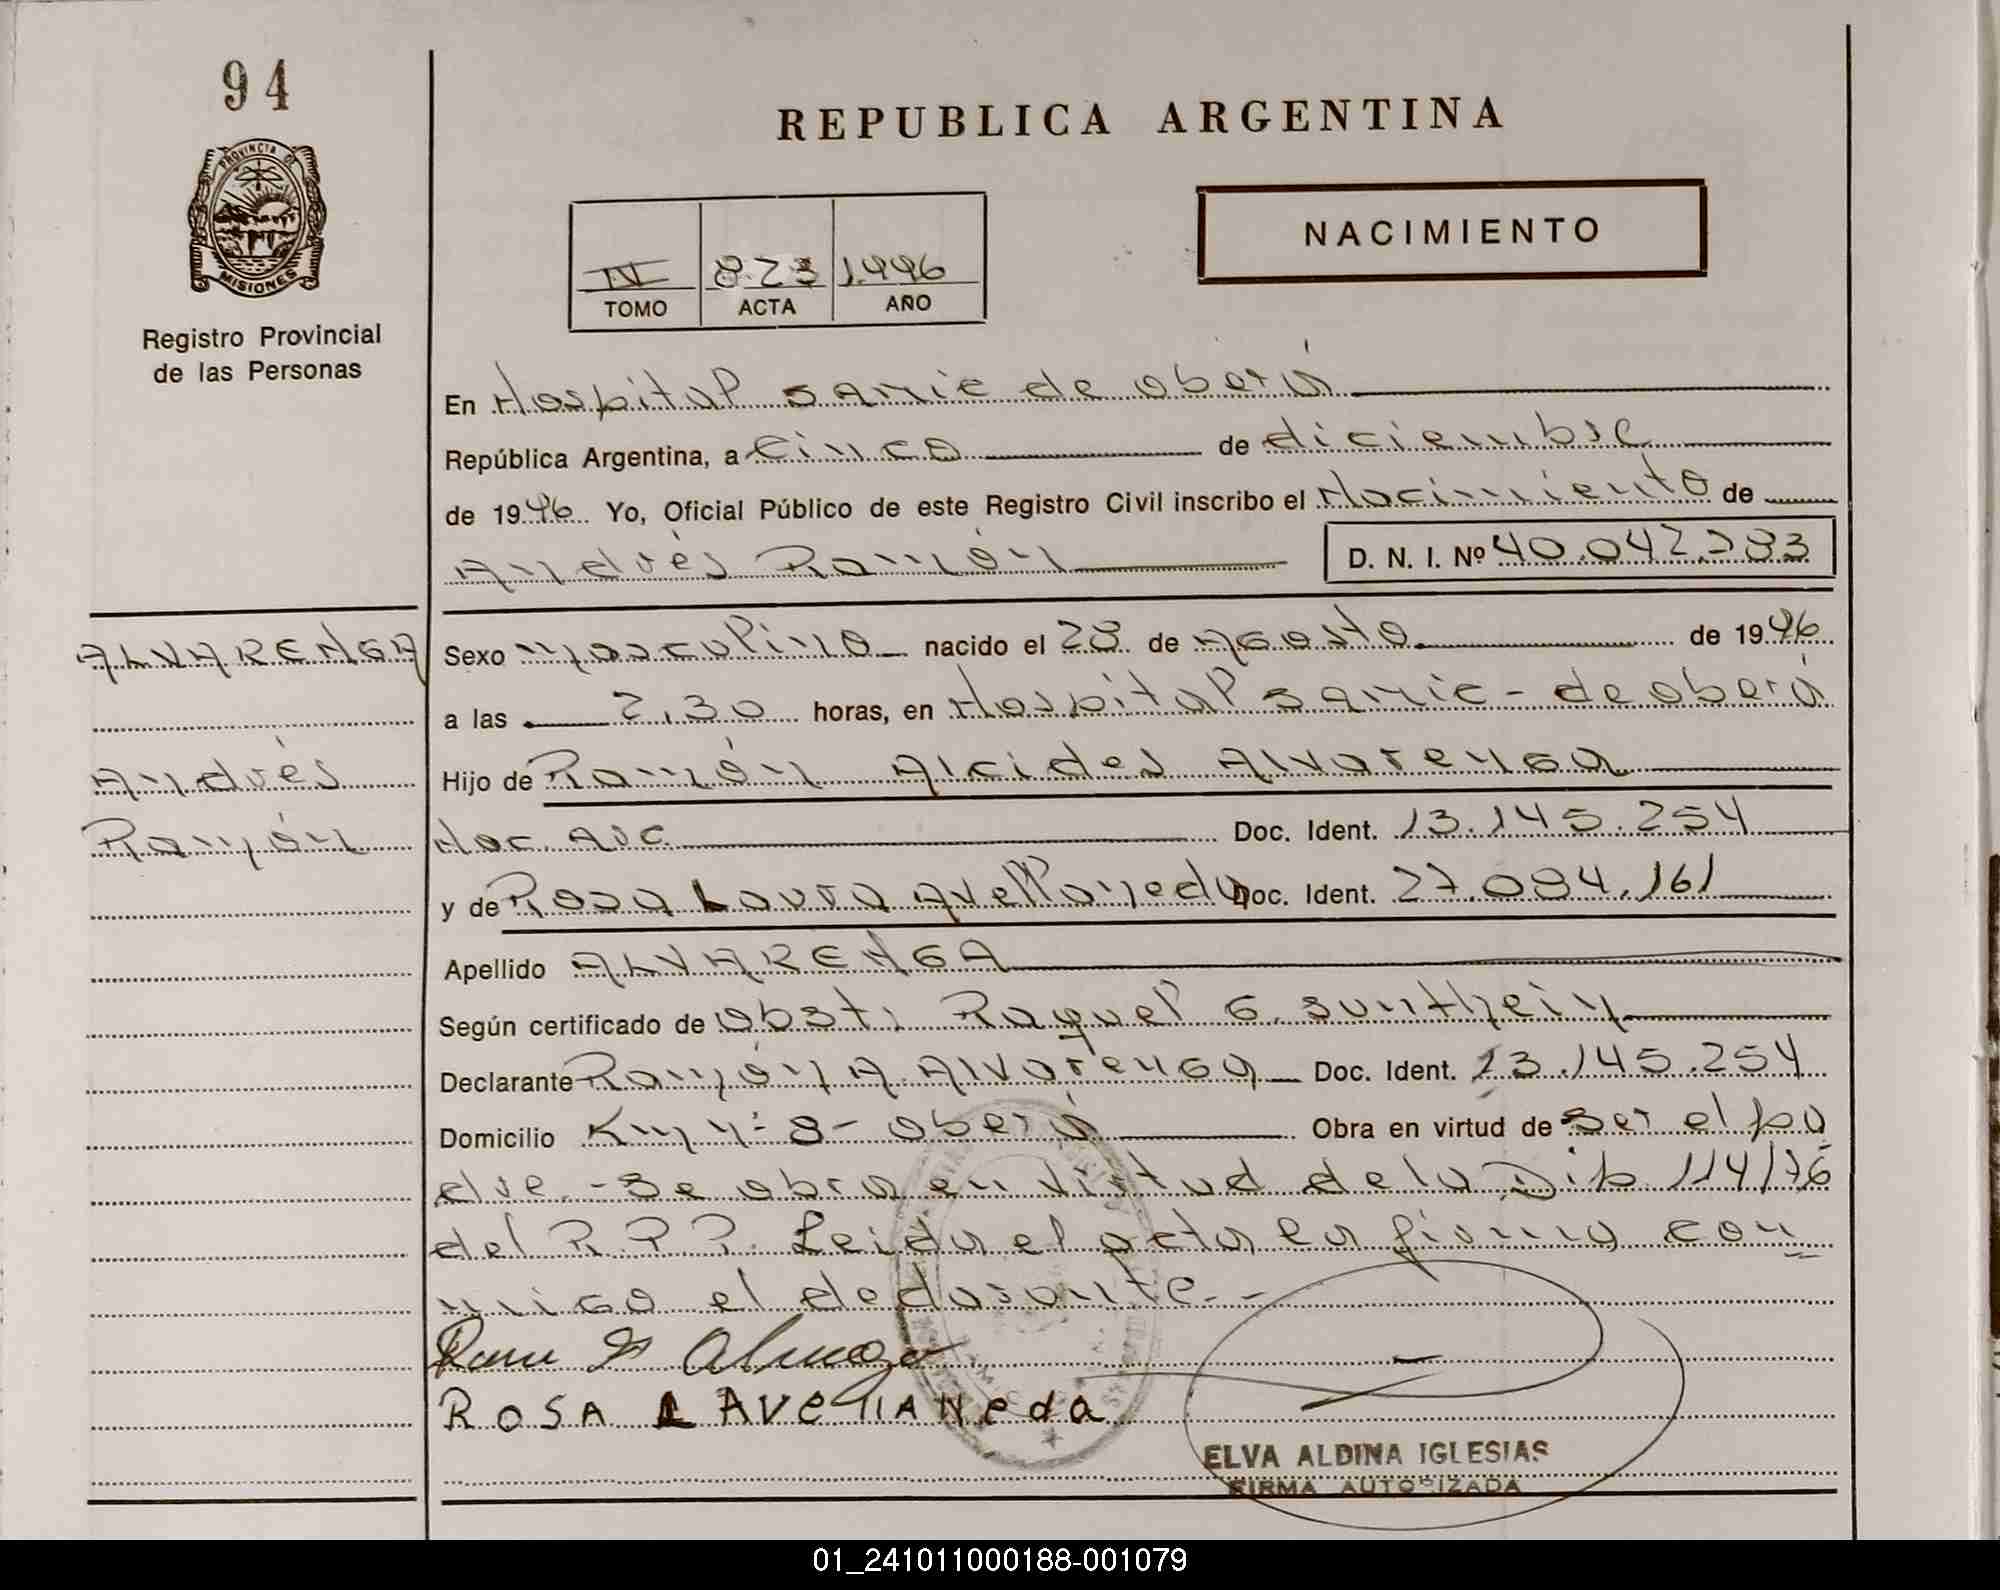 94
PROVINCIA DE
MISIONES
Registro Provincial
de las Personas
REPUBLICA ARGENTINA
NACIMIENTO
IV 823 1.996
TOMO ACTA AÑO
En Hospital samic de oberá
República Argentina, a cinco de diciembre
de 1996. Yo, Oficial Público de este Registro Civil inscribo el Nacimiento de
Andrés Ramón D. N. I. Nº 40.042.783
ALVARENGA
Andrés
Ramón
Sexo masculino nacido el 28 de Agosto de 1996
a las 2,30 horas, en Hospital samic - de oberá
Hijo de Ramón Alcides Alvarenga
Nac. Arg. Doc. Ident. 13.145.254
y de Rosa Laura Avellaneda Doc. Ident. 27.094.161
Apellido ALVARENGA
Según certificado de obst. Raquel G. Sunthein
Declarante Ramón A. Alvarenga Doc. Ident. 13.145.254
Domicilio Km nº 8 - oberá Obra en virtud de ser el pa
dre. - Se obra en virtud de la Dip 114/96
del R.P.P. Leida el acta la firma con
migo el declarante. -
ROSA L AVellANedA
ELVA ALDINA IGLESIAS
FIRMA AUTORIZADA
01_241011000188-001079